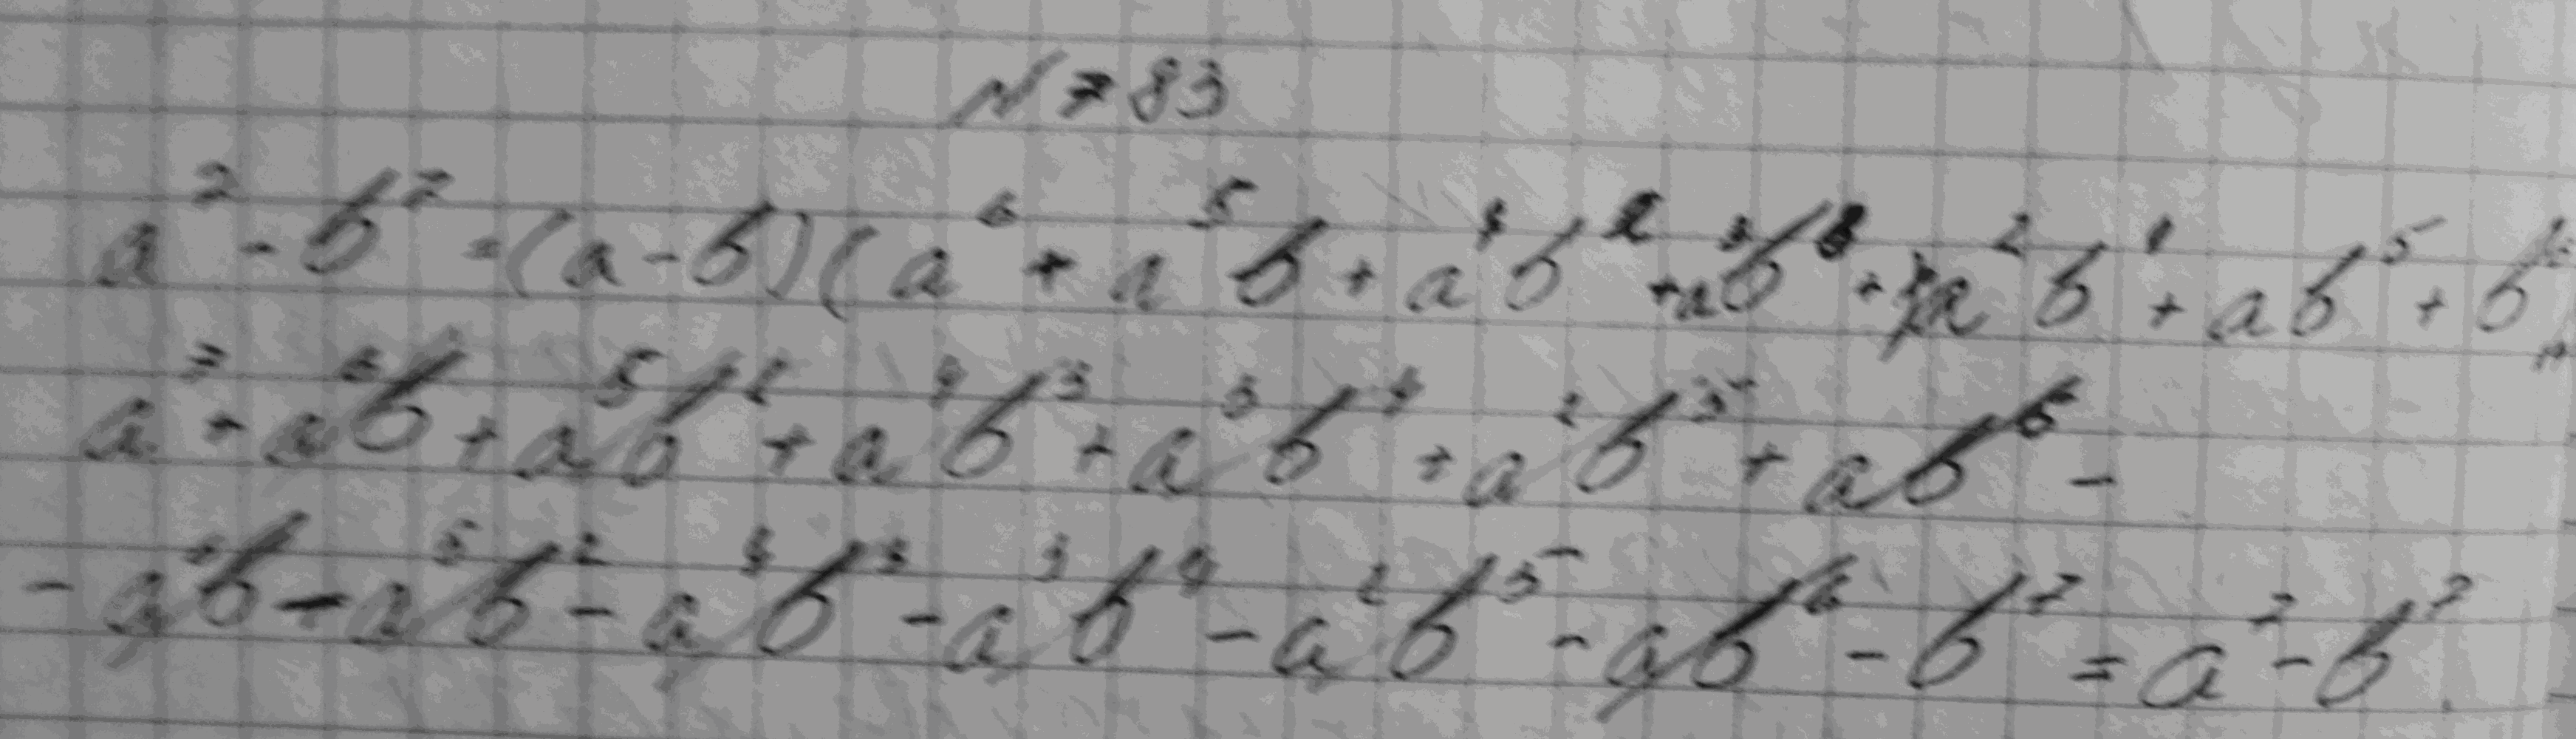 N 783
a⁷ - b⁷ = (a-b)(a⁶ + a⁵b + a⁴b² + a³b³ + a²b⁴ + ab⁵ + b⁶)
a⁷ + a⁶b + a⁵b² + a⁴b³ + a³b⁴ + a²b⁵ + ab⁶ -
- a⁶b - a⁵b² - a⁴b³ - a³b⁴ - a²b⁵ - ab⁶ - b⁷ = a⁷ - b⁷.